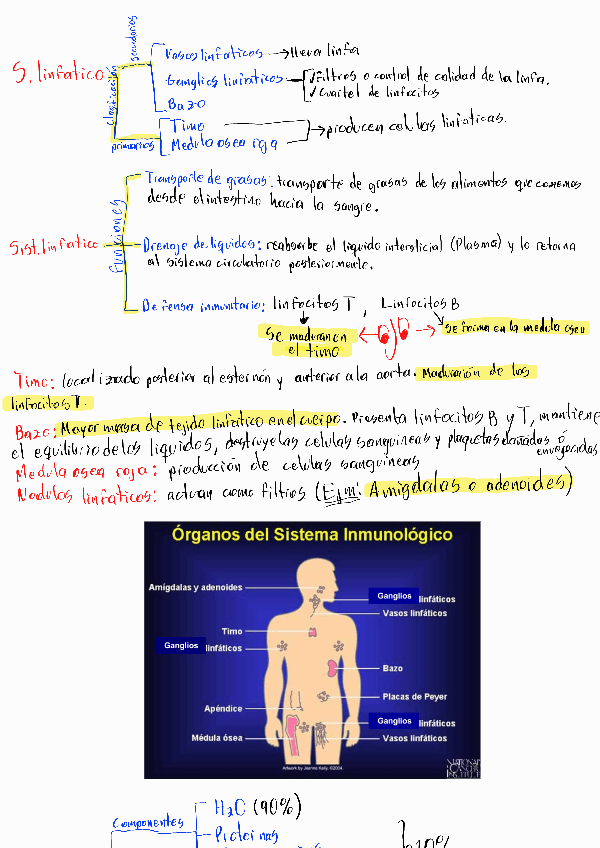 S. linfatico
clasificación
secundarios
Vasos linfaticos → lleva linfa
Ganglios linfaticos
✓ Filtros o control de calidad de la linfa.
✓ Cuartel de linfocitos
Bazo
primarios
Timo
Medula osea roja
→ producen celulas linfaticas.
Sist. linfatico
Funciones
Transporte de grasas: transporte de grasas de los alimentos que comemos
desde el intestino hacia la sangre.
Drenaje de liquidos: reabsorbe el liquido intersticial (Plasma) y lo retorna
al sistema circulatorio posteriormente.
Defensa inmunitaria: linfocitos T, Linfocitos B
Se maduran en
el timo
se forma en la medula osea
Timo: localizado posterior al esternón y anterior a la aorta. Maduración de los
linfocitos T.
Bazo: Mayor masa de tejido linfatico en el cuerpo. Presenta linfocitos B y T, mantiene
el equilibrio de los liquidos, destruye las celulas sanguineas y plaquetas dañadas ó
envejecidas
Medula osea roja: producción de celulas sanguineas
Nodulos linfaticos: actuan como filtros (Ejm: Amigdalas o adenoides)
Órganos del Sistema Inmunológico
Amígdalas y adenoides
Ganglios linfáticos
Vasos linfáticos
Timo
Ganglios linfáticos
Bazo
Placas de Peyer
Apéndice
Ganglios linfáticos
Médula ósea
Vasos linfáticos
Artwork by Jeanne Kelly. ©2004.
NATIONAL
CANCER
INSTITUTE
Componentes
H2O (90%)
Proteinas